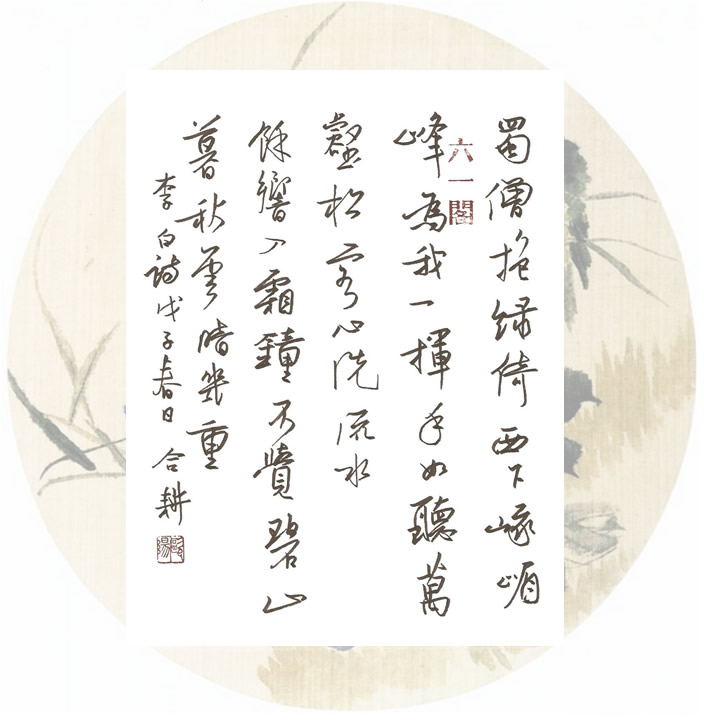 蜀僧抱緑倚西下峨嵋
峰為我一揮手如聽萬
壑松客心洗流水
餘響入霜鐘不覺碧山
暮秋雲暗幾重
李白詩戊子春日 合耕
六一閣
歐陽